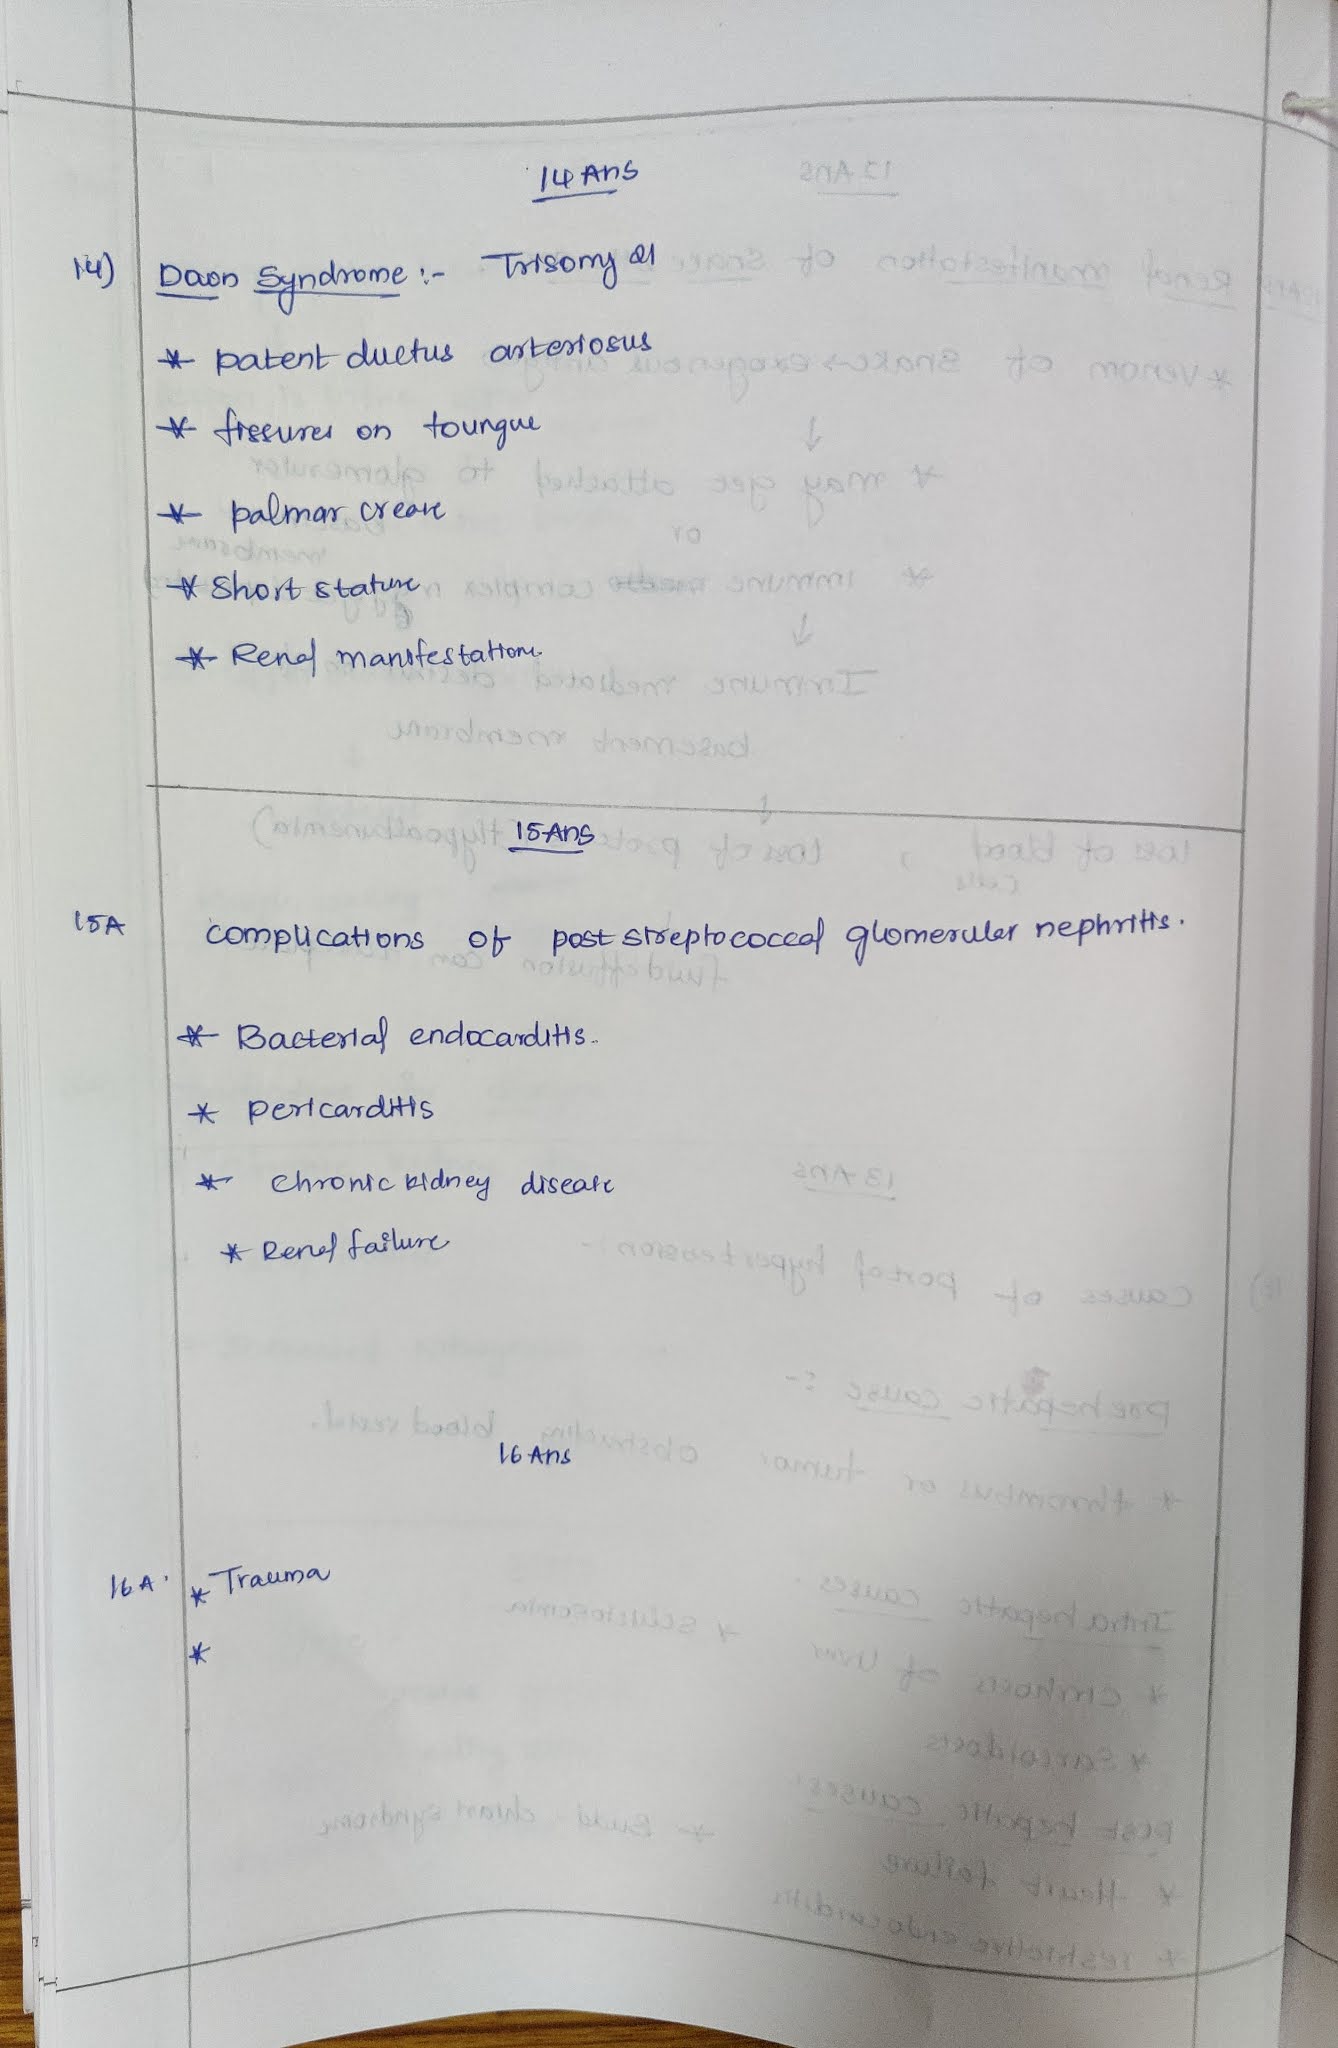 14 Ans
14) Daon Syndrome :- Trisomy 21
* patent ductus arteriosus
* fissures on toungue
* palmar crease
* Short stature
* Renal manifestations.
15 Ans
15A complications of post streptococcal glomerular nephritis.
* Bacterial endocarditis.
* pericarditis
* chronic kidney disease
* Renal failure
16 Ans
16A. * Trauma
*